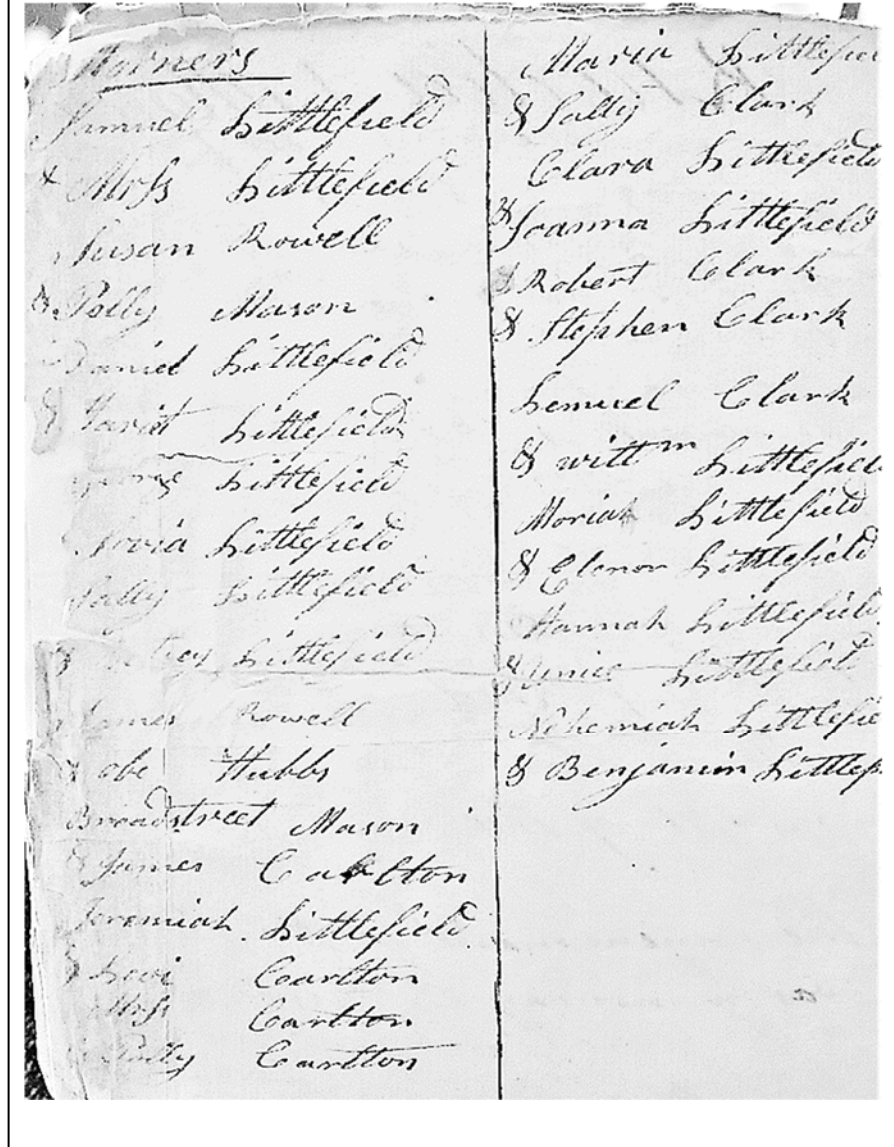 Morners
Samuel Littlefield
& Mrss Littlefield
Susan Rowell
& Polly Mason
Daniel Littlefield
& Hariot Littlefield
George Littlefield
Littlefield
Sally Littlefield
& Littlefield
James Rowell
& obe Hubbs
Broadstreet Mason
& James Carlton
Jeremiah Littlefield
& Levi Carlton
Mrss Carlton
& Polly Carlton
Maria Littlefiel
& Sally Clark
Clara Littlefield
& Joanna Littlefield
& Robert Clark
& Stephen Clark
Lemuel Clark
& willm Littlefield
Moriah Littlefield
& Elenor Littlefield
Hannah Littlefield
& Junice Littlefield
Nehemiah Littlefie
& Benjamin Littlef